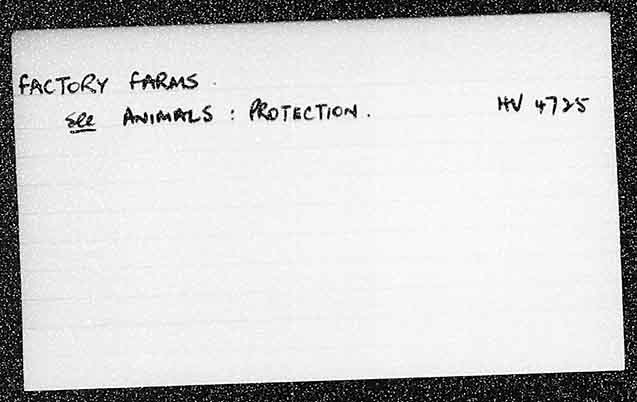 FACTORY FARMS.
see ANIMALS : PROTECTION. HV 4725